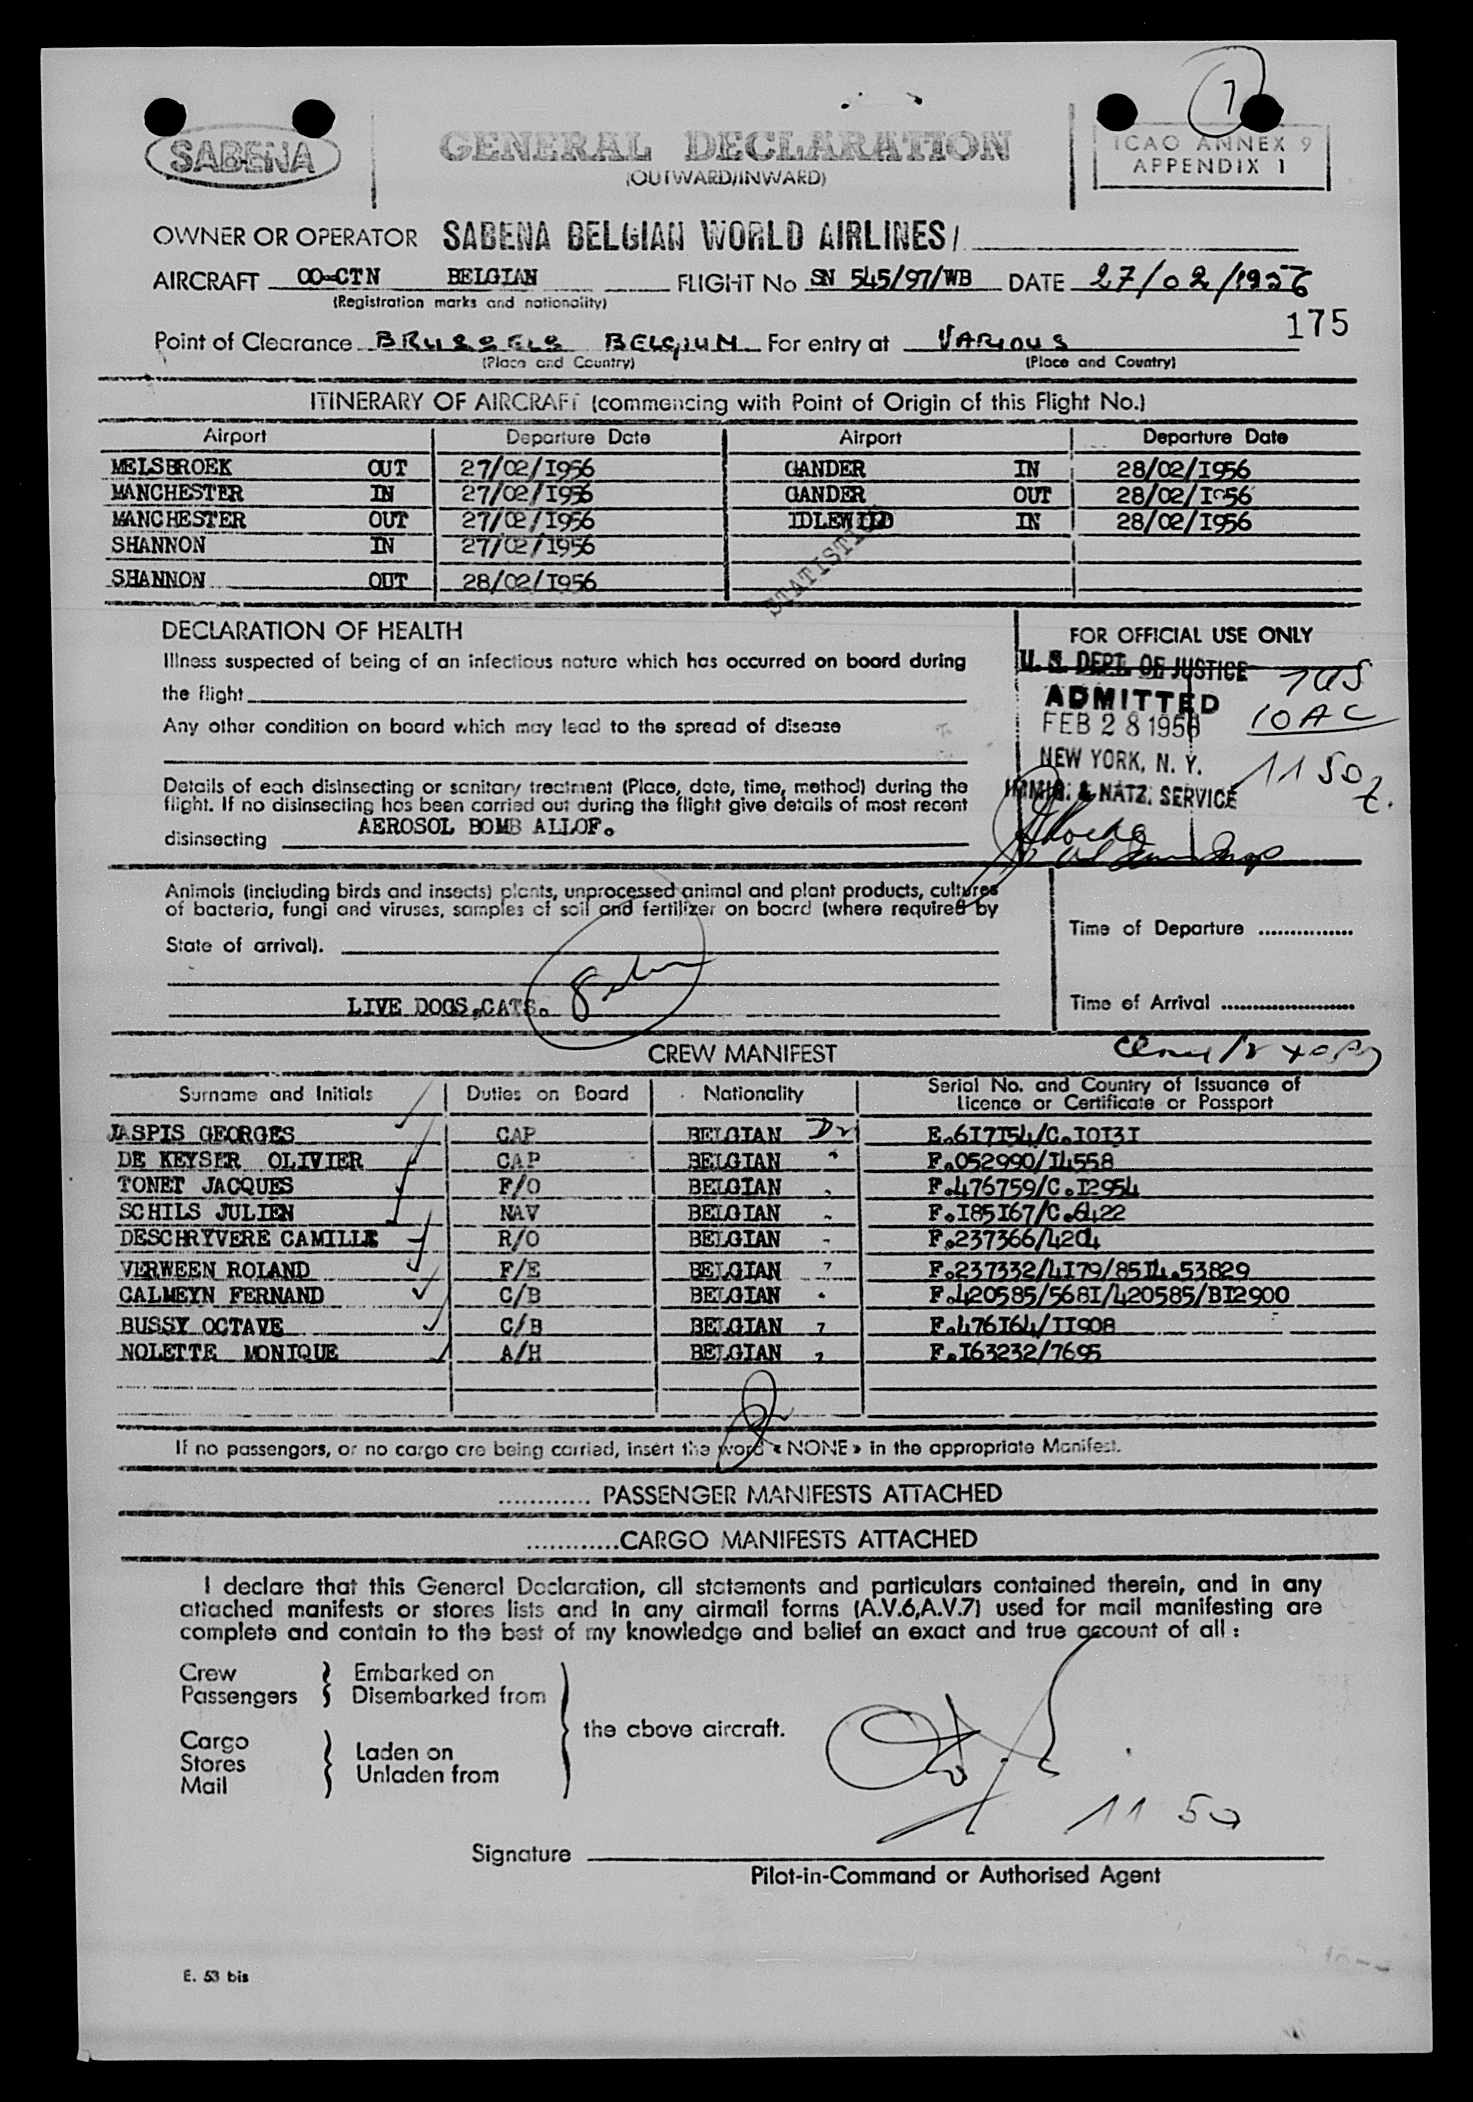 7
SABENA
GENERAL DECLARATION
(OUTWARD/INWARD)
ICAO ANNEX 9
APPENDIX 1
OWNER OR OPERATOR SABENA BELGIAN WORLD AIRLINES/
AIRCRAFT OO-CTN BELGIAN FLIGHT No SN 545/97/WB DATE 27/02/1956
(Registration marks and nationality)
175
Point of Clearance BRUSSELS BELGIUM For entry at VARIOUS
(Place and Country) (Place and Country)
ITINERARY OF AIRCRAFT (commencing with Point of Origin of this Flight No.)
Airport Departure Date Airport Departure Date
MELSBROEK OUT 27/02/I956 GANDER IN 28/02/I956
MANCHESTER IN 27/02/I956 GANDER OUT 28/02/I956
MANCHESTER OUT 27/02/I956 IDLEWILD IN 28/02/I956
SHANNON IN 27/02/I956
SHANNON OUT 28/02/I956
DECLARATION OF HEALTH
Illness suspected of being of an infectious nature which has occurred on board during
the flight
Any other condition on board which may lead to the spread of disease
Details of each disinsecting or sanitary treatment (Place, date, time, method) during the
flight. If no disinsecting has been carried out during the flight give details of most recent
AEROSOL BOMB ALLOF.
disinsecting
FOR OFFICIAL USE ONLY
U. S. DEPT. OF JUSTICE
ADMITTED
FEB 28 1956
10 AC
NEW YORK, N. Y.
1150
IMMIG. & NATZ. SERVICE
Animals (including birds and insects) plants, unprocessed animal and plant products, cultures
of bacteria, fungi and viruses, samples of soil and fertilizer on board (where required by
State of arrival).
LIVE DOGS.CATS.
Time of Departure ...............
Time of Arrival .....................
CREW MANIFEST
Surname and Initials Duties on Board Nationality Serial No. and Country of Issuance of
Licence or Certificate or Passport
JASPIS GEORGES CAP BELGIAN E.6I7I54/C.IOI3I
DE KEYSER OLIVIER CAP BELGIAN F.052990/I4558
TONET JACQUES F/O BELGIAN F.476759/C.I2954
SCHILS JULIEN NAV BELGIAN F.I85I67/C.6422
DESCHRYVERE CAMILLE R/O BELGIAN F.237366/4204
VERWEEN ROLAND F/E BELGIAN F.237332/4I79/85I4.53829
CALMEYN FERNAND C/B BELGIAN F.420585/568I/420585/BI2900
BUSSY OCTAVE C/B BELGIAN F.476I64/II908
NOLETTE MONIQUE A/H BELGIAN F.I63232/7695
If no passengers, or no cargo are being carried, insert the word « NONE » in the appropriate Manifest.
............ PASSENGER MANIFESTS ATTACHED
............CARGO MANIFESTS ATTACHED
I declare that this General Declaration, all statements and particulars contained therein, and in any
attached manifests or stores lists and in any airmail forms (A.V.6,A.V.7) used for mail manifesting are
complete and contain to the best of my knowledge and belief an exact and true account of all :
Crew Embarked on
Passengers Disembarked from
the above aircraft.
Cargo
Stores Laden on
Mail Unladen from
11 50
Signature
Pilot-in-Command or Authorised Agent
E. 53 bis